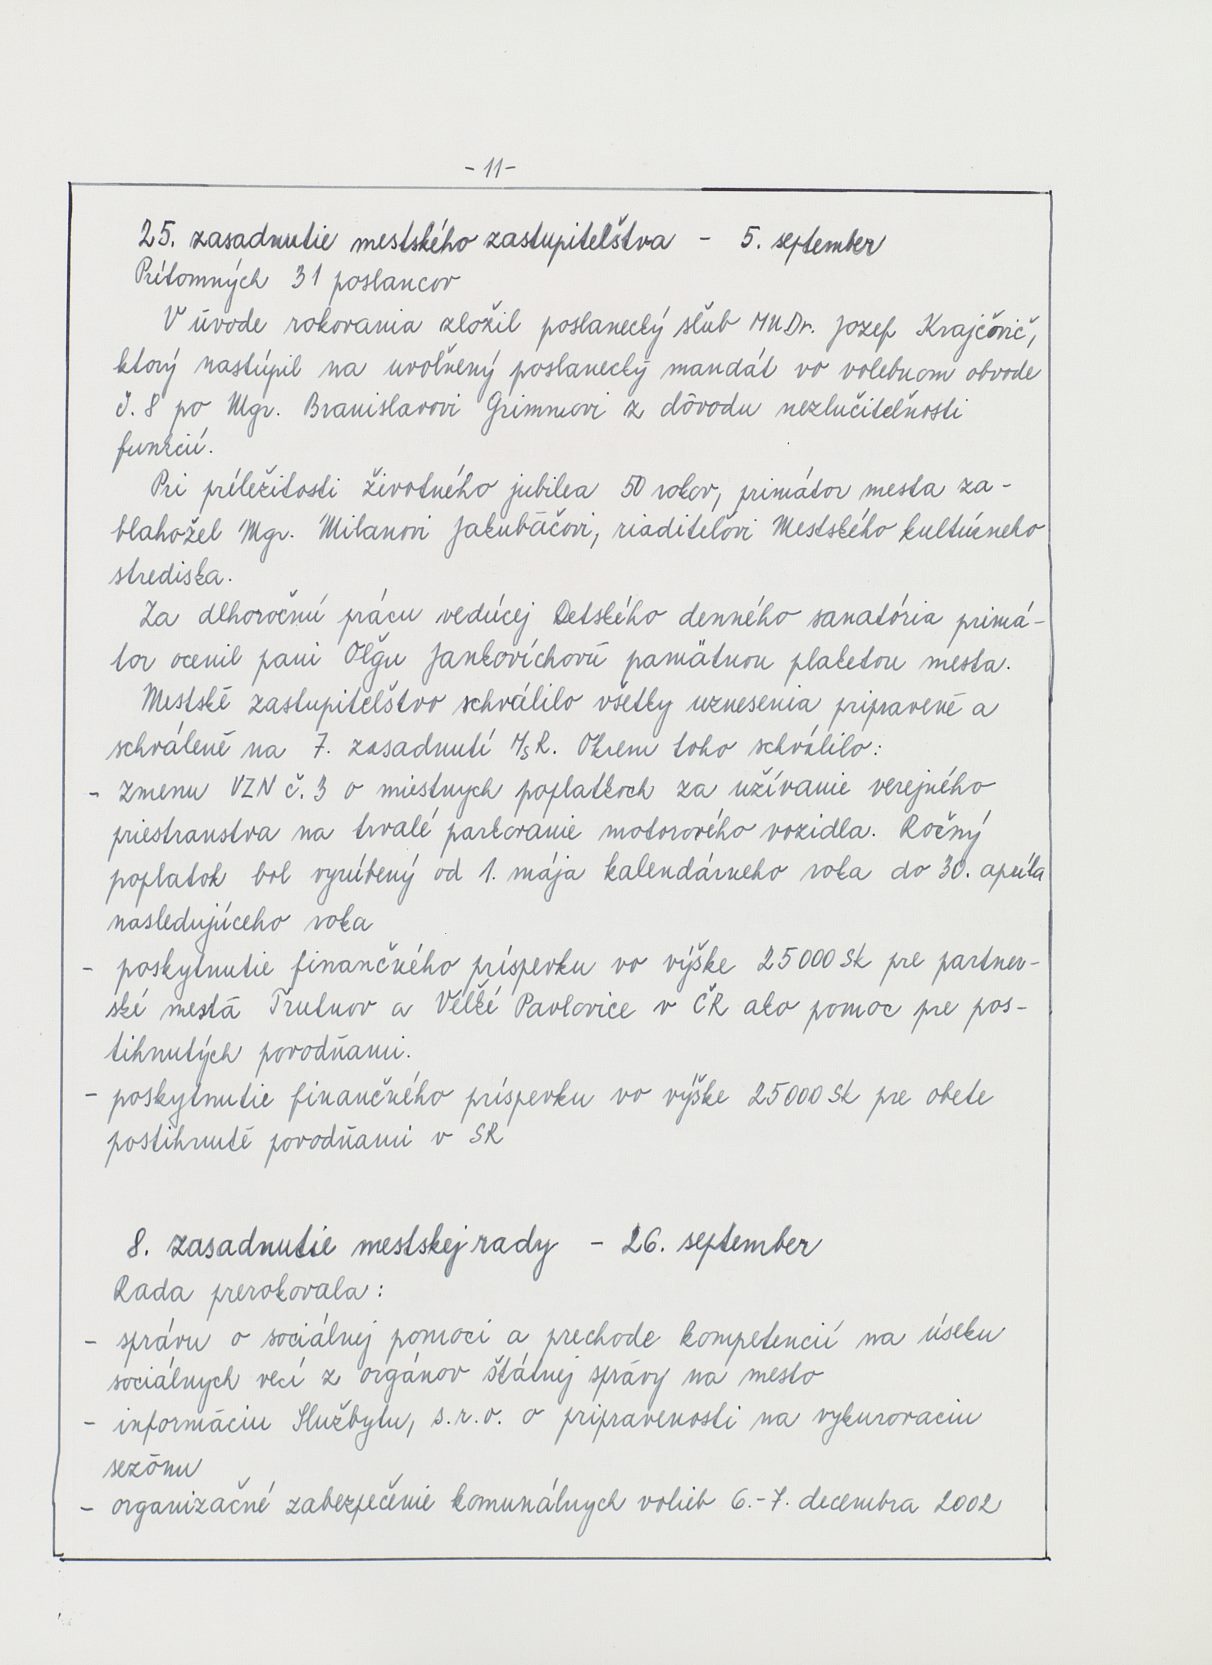 - 11 -
25. zasadnutie mestského zastupiteľstva - 5. september
Prítomných 31 poslancov
V úvode rokovania zložil poslanecký sľub MUDr. Jozef Krajčovič,
ktorý nastúpil na uvoľnený poslanecký mandát vo volebnom obvode
č. 8 po Mgr. Branislavovi Grimmovi z dôvodu nezlučiteľnosti
funkcií.
Pri príležitosti životného jubilea 50 rokov, primátor mesta za-
blahožel Mgr. Milanovi Jakubáčovi, riaditeľovi Mestského kultúrneho
strediska.
Za dlhoročnú prácu vedúcej Detského denného sanatória primá-
tor ocenil pani Oľgu Jankovíchovú pamätnou plaketou mesta.
Mestské zastupiteľstvo schválilo všetky uznesenia pripravené a
schválené na 7. zasadnutí MsR. Okrem toho schválilo:
- zmenu VZN č. 3 o miestnych poplatkoch za užívanie verejného
priestranstva na trvalé parkovanie motorového vozidla. Ročný
poplatok bol vyrúbený od 1. mája kalendárneho roka do 30. apríla
nasledujúceho roka
- poskytnutie finančného príspevku vo výške 25 000 Sk pre partner-
ské mestá Trutnov a Veľké Pavlovice v ČR ako pomoc pre pos-
tihnutých povodňami.
- poskytnutie finančného príspevku vo výške 25 000 Sk pre obete
postihnuté povodňami v SR
8. zasadnutie mestskej rady - 26. september
Rada prerokovala:
- správu o sociálnej pomoci a prechode kompetencií na úseku
sociálnych vecí z orgánov štátnej správy na mesto
- informáciu Službytu, s.r.o. o pripravenosti na vykurovaciu
sezónu
- organizačné zabezpečenie komunálnych volieb 6.-7. decembra 2002